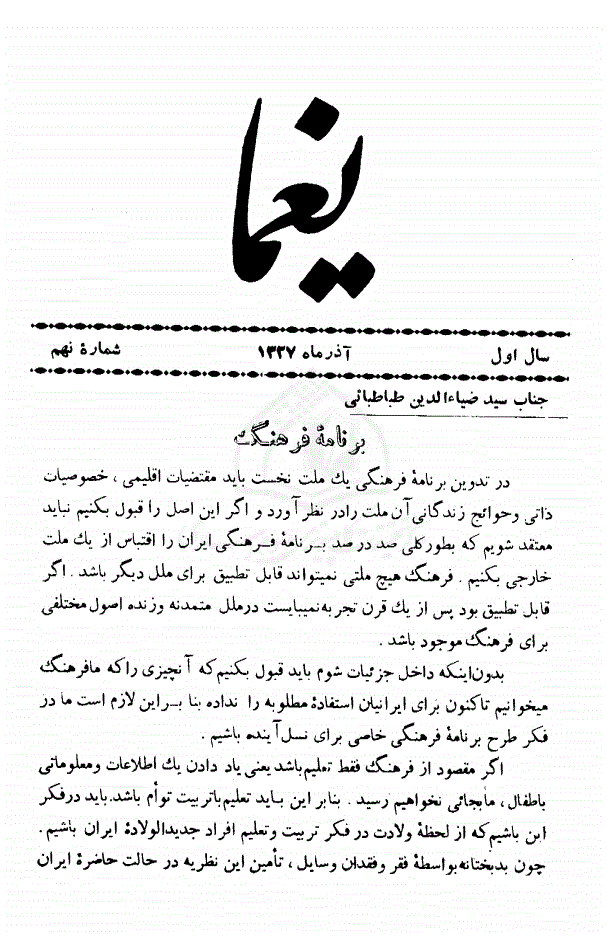 یغما
سال اول آذر ماه ۱۳۲۷ شمارهٔ نهم
جناب سید ضیاءالدین طباطبائی
برنامهٔ فرهنگ
در تدوین برنامهٔ فرهنگی یك ملت نخست باید مقتضیات اقلیمی ، خصوصیات
ذاتی وحوائج زندگانی آن ملت رادر نظر آورد و اگر این اصل را قبول بکنیم نباید
معتقد شویم که بطورکلی صد در صد برنامهٔ فرهنگی ایران را اقتباس از یك ملت
خارجی بکنیم . فرهنگ هیچ ملتی نمیتواند قابل تطبیق برای ملل دیگر باشد . اگر
قابل تطبیق بود پس از یك قرن تجربه نمیبایست درملل متمدنه وزنده اصول مختلفی
برای فرهنگ موجود باشد .
بدون اینکه داخل جزئیات شوم باید قبول بکنیم که آنچیزی راکه مافرهنگ
میخوانیم تاکنون برای ایرانیان استفادهٔ مطلوبه را نداده بنا براین لازم است ما در
فکر طرح برنامهٔ فرهنگی خاصی برای نسل آینده باشیم .
اگر مقصود از فرهنگ فقط تعلیم باشد یعنی یاد دادن یك اطلاعات ومعلوماتی
باطفال ، مابجائی نخواهیم رسید . بنابر این باید تعلیم باتربیت توأم باشد.باید درفکر
این باشیم که از لحظهٔ ولادت در فکر تربیت وتعلیم افراد جدیدالولادهٔ ایران باشیم .
چون بدبختانه بواسطهٔ فقر وفقدان وسایل ، تأمین این نظریه در حالت حاضرهٔ ایران